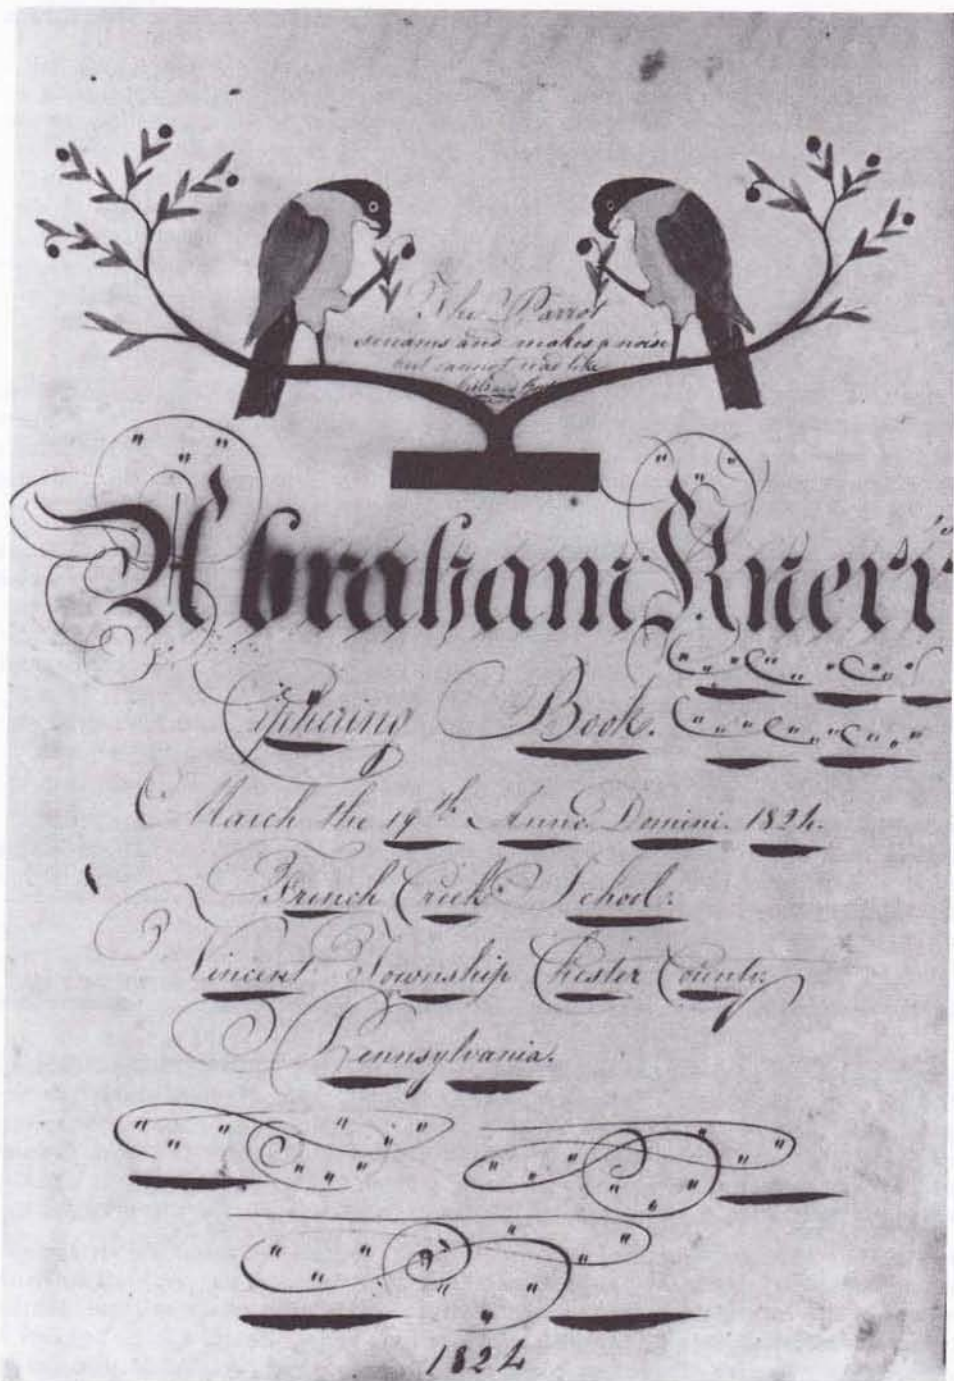 The Parrot
screams and makes a noise
but cannot read like
Abraham Knerr's
Ciphering Book.
March the 19th Anno. Domini. 1824.
French Creek School.
Vincent Township Chester County.
Pennsylvania.
1824